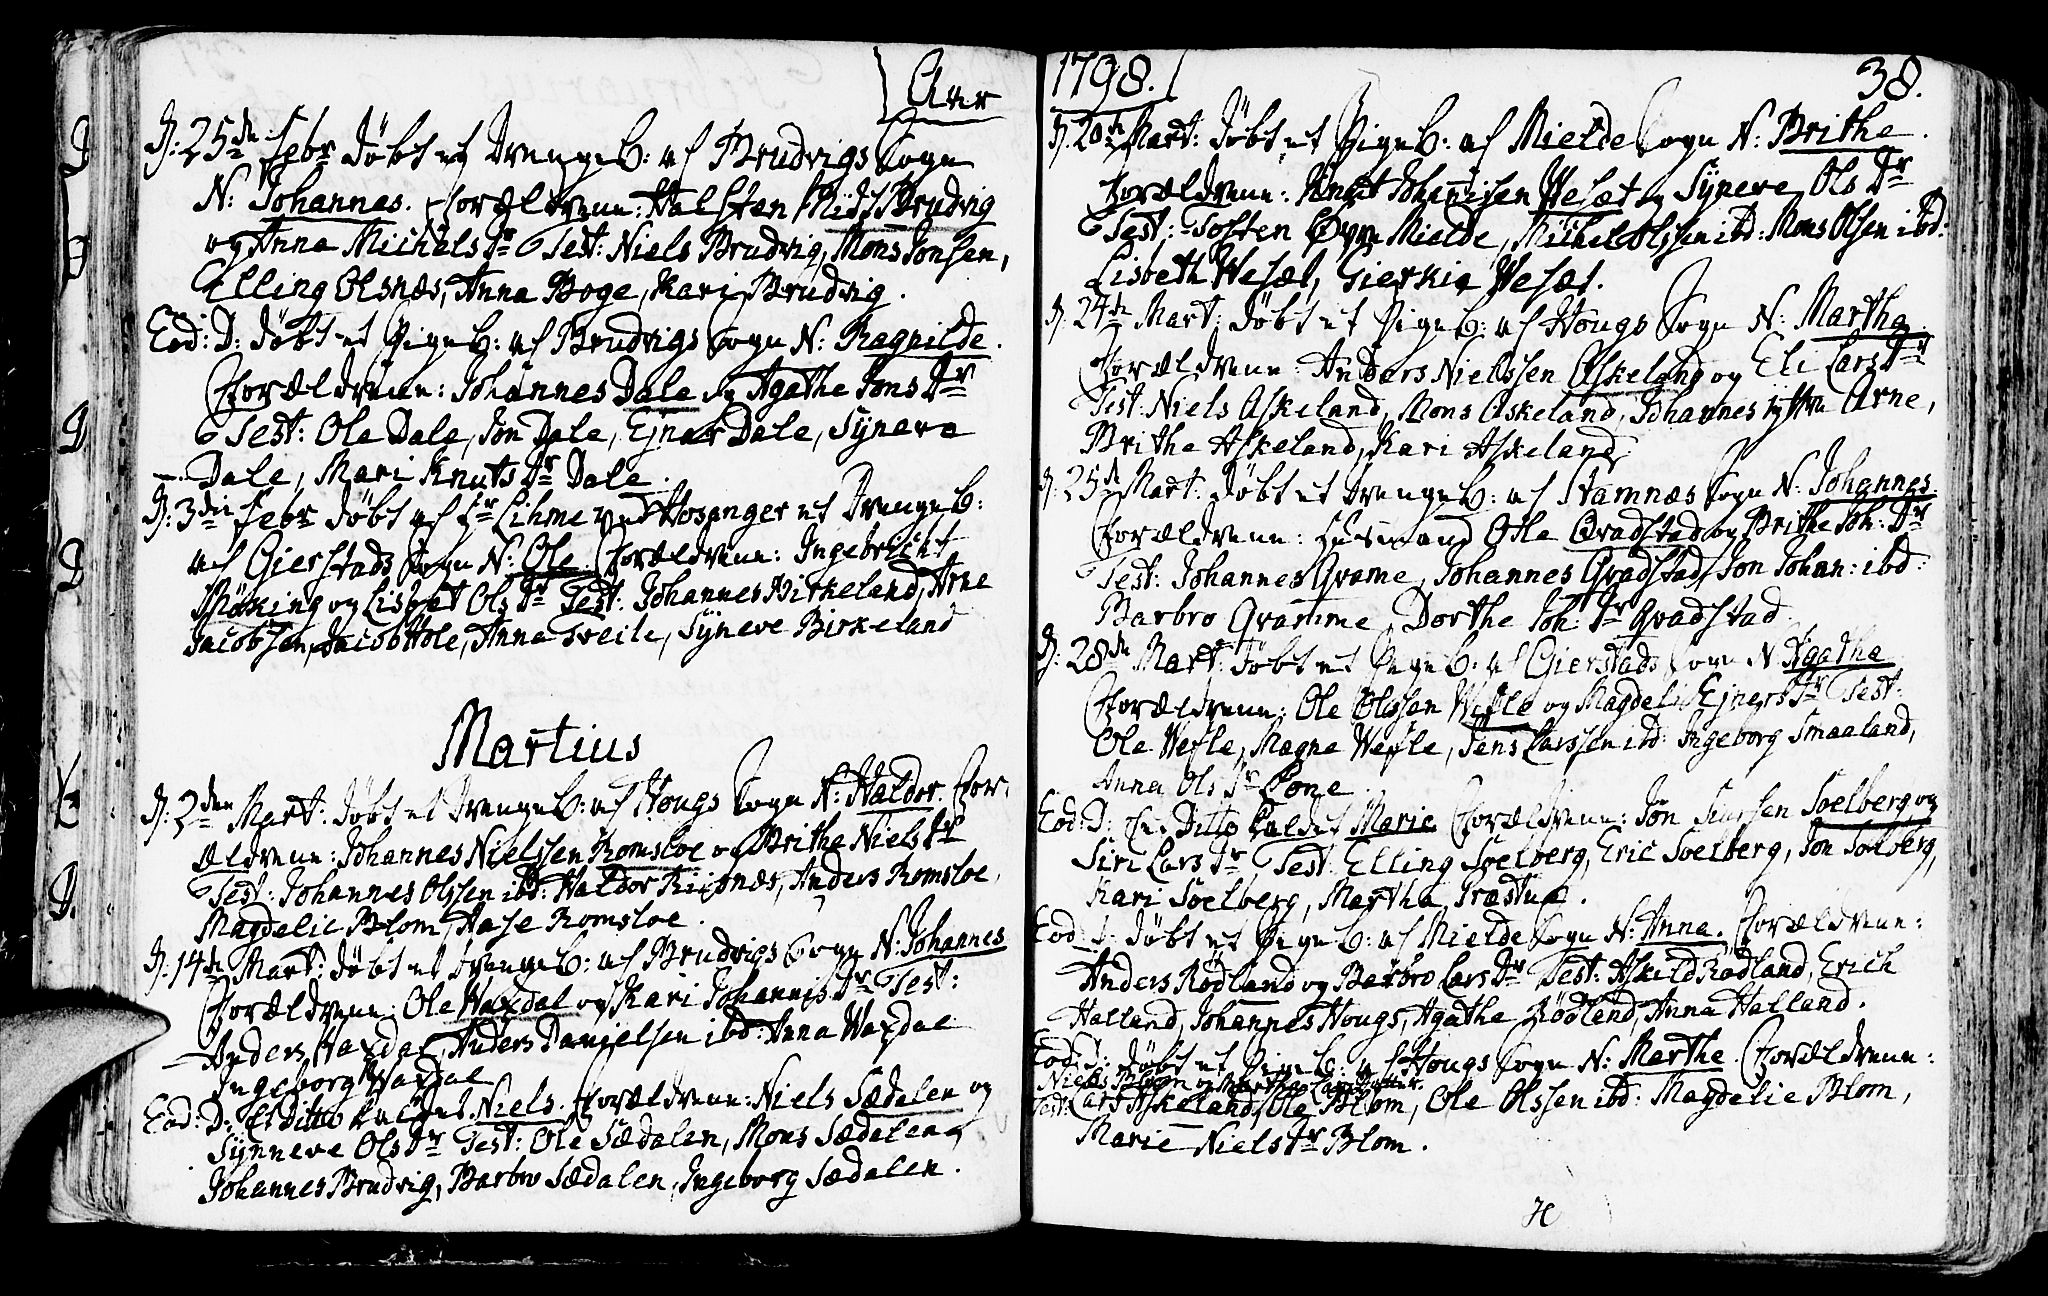 Anno
D: 25de Febr døbt et Drengeb: af Brudvigs Sogn
N: Johannes. Forældrene: Halsten Brudvig
og Anna Michels Dr Test: Niels Brudvig, Mons Jonsen,
Elling Olsnæs, Anna Boge, Kari Brudvig.
Eod: D: døbt et Pigeb: af Brudvigs Sogn N: Ragnilde.
Forældrene: Johannes Dale og Agathe Jons Dr
Test: Ole Dale, Jon Dale, Ejner Dale, Syneve
Dale, Mari Knuts Dr Dale.
D: 3die Febr døbt af Hr Lihme ved Hosanger et Drengeb:
af Gierstads Sogn N: Ole. Forældrene: Ingebricht
og Lisbet Ols Dr Test: Johannes Birkeland, Arne
Jacobsen, Jacob Hole, Anna Tveite, Syneve Birkeland
Martius
D: 2den Mart: døbt et Drengeb: af Hougs Sogn N: Haldor. For-
ældrene: Johannes Nielssen Romsloe og Brithe Niels Dr
Test: Johannes Olssen ibd: Haldor Anders Romsloe,
Magdelie Blom, Aase Romsloe.
D: 14de Mart: døbt et Drengeb: af Brudvigs Sogn N: Johannes
Forældrene: Ole Waxdal og Kari Johannis Dr Test:
Anders Waxdal, Anders Danielsen ibd: Anna Waxdal
Ingeborg Waxdal
Eod: D: Et Ditto kaldet Niels. Forældrene: Niels Sædalen og
Synneve Ols Dr Test: Ole Sædalen, Mons Sædalen,
Johannes Brudvig, Barbro Sædalen, Ingeborg Sædalen.
1798.
38.
D: 20de Mart: døbt et Pigeb: af Mielde Sogn N: Brithe.
Forældrene: Knut Johannisen Wesæt og Syneve Ols Dr
Test: Tosten Øvre Mielde, Michel Olssen ibd: Mons Olsen ibd:
Lisbeth Wesæt, Gierkie Wesæt.
D: 24de Mart: døbt et Pigeb: af Hougs Sogn N: Martha.
Forældrene: Anders Nielssen Askeland og Eli Lars Dr
Test: Niels Askeland, Mons Askeland, Johannes yttre Arne,
Brithe Askeland, Kari Askeland.
D: 25de Mart: døbt et Drengeb: af Stamnæs Sogn N: Johannes.
Forældrene: Husmand Ole Qvadstad og Brithe Joh: Dr
Test: Johannes Qvame, Johannes Qvadstad, Jon Johan: ibd:
Barbro Qvamme, Dorthe Joh: Dr Qvadstad
D: 28de Mart: døbt et Pigeb: af Gierstads Sogn N: Agatha
Forældrene: Ole Olssen Wefle og Magdeli Ejners Dr Test:
Ole Wefle, Magne Wefle, Jens Larssen ibd: Ingeborg Smaaland,
Anna Ols Dr Lone.
Eod: D: Et Ditto kaldet Marie Forældrene: Jon Siursen Soelberg og
Siri Lars Dr Test: Elling Soelberg, Eric Soelberg, Jon Soelberg,
Kari Soelberg, Martha Træstue.
Eod: D: døbt et Pigeb: af Mielde Sogn N: Anna. Forældrene:
Anders Rødland og Barbro Lars Dr Test: Askild Rødland, Erich
Halland, Johannes Hougs, Agathe Rødland, Anna Halland.
Eod: D: døbt et Pigeb: af Hougs Sogn N: Marthe. Forældrene:
Niels Blom og Marthe Lars Datter.
Test: Lars Askeland, Ole Blom, Ole Olssen ibd: Magdelie Blom,
Marie Niels Dr Blom.